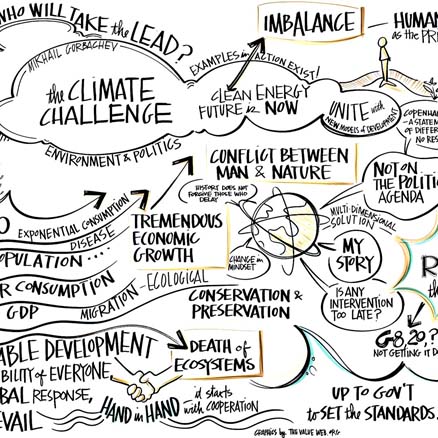 WHO WILL TAKE the LEAD?
MIKHAIL GORBACHEV
the CLIMATE
CHALLENGE
ENVIRONMENT & POLITICS
IMBALANCE
EXAMPLES in ACTION EXIST!
CLEAN ENERGY
FUTURE is NOW
HUMAN
as the PR
UNITE with
NEW MODELS of DEVELOPMENT
COPENHA
- A STATEM
OF DIFFER
NO RES
CONFLICT BETWEEN
MAN & NATURE
NOT ON...
THE POLITI
AGENDA
HISTORY DOES NOT
FORGIVE THOSE WHO
DELAY
EXPONENTIAL CONSUMPTION
DISEASE
OPULATION ....
R CONSUMPTION
GDP
MIGRATION - ECOLOGICAL
TREMENDOUS
ECONOMIC
GROWTH
CHANGE in
MINDSET
MULTI-DIMENSIONAL
SOLUTION
MY
STORY
IS ANY
INTERVENTION
TOO LATE?
R
th
CONSERVATION &
PRESERVATION
G-8, 20?
NOT GETTING IT D
ABLE DEVELOPMENT
BILITY OF EVERYONE,
BAL RESPONSE,
EVAIL
HAND in HAND
DEATH of
ECOSYSTEMS
-it starts
with COOPERATION
UP TO GOV'T
to SET the STANDARDS.
GRAPHICS by THE VALUE WEB .ORG